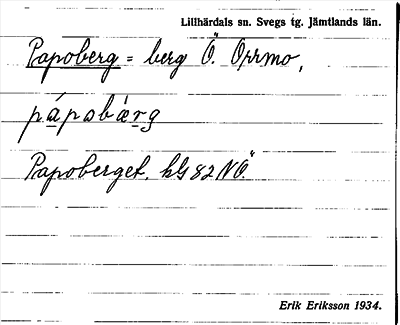 Lillhärdals sn. Svegs tg. Jämtlands län.
Papoberg = berg Ö. Orrmo,
pápobǽrg
Papoberget, kG 82 NÖ.
Erik Eriksson 1934.